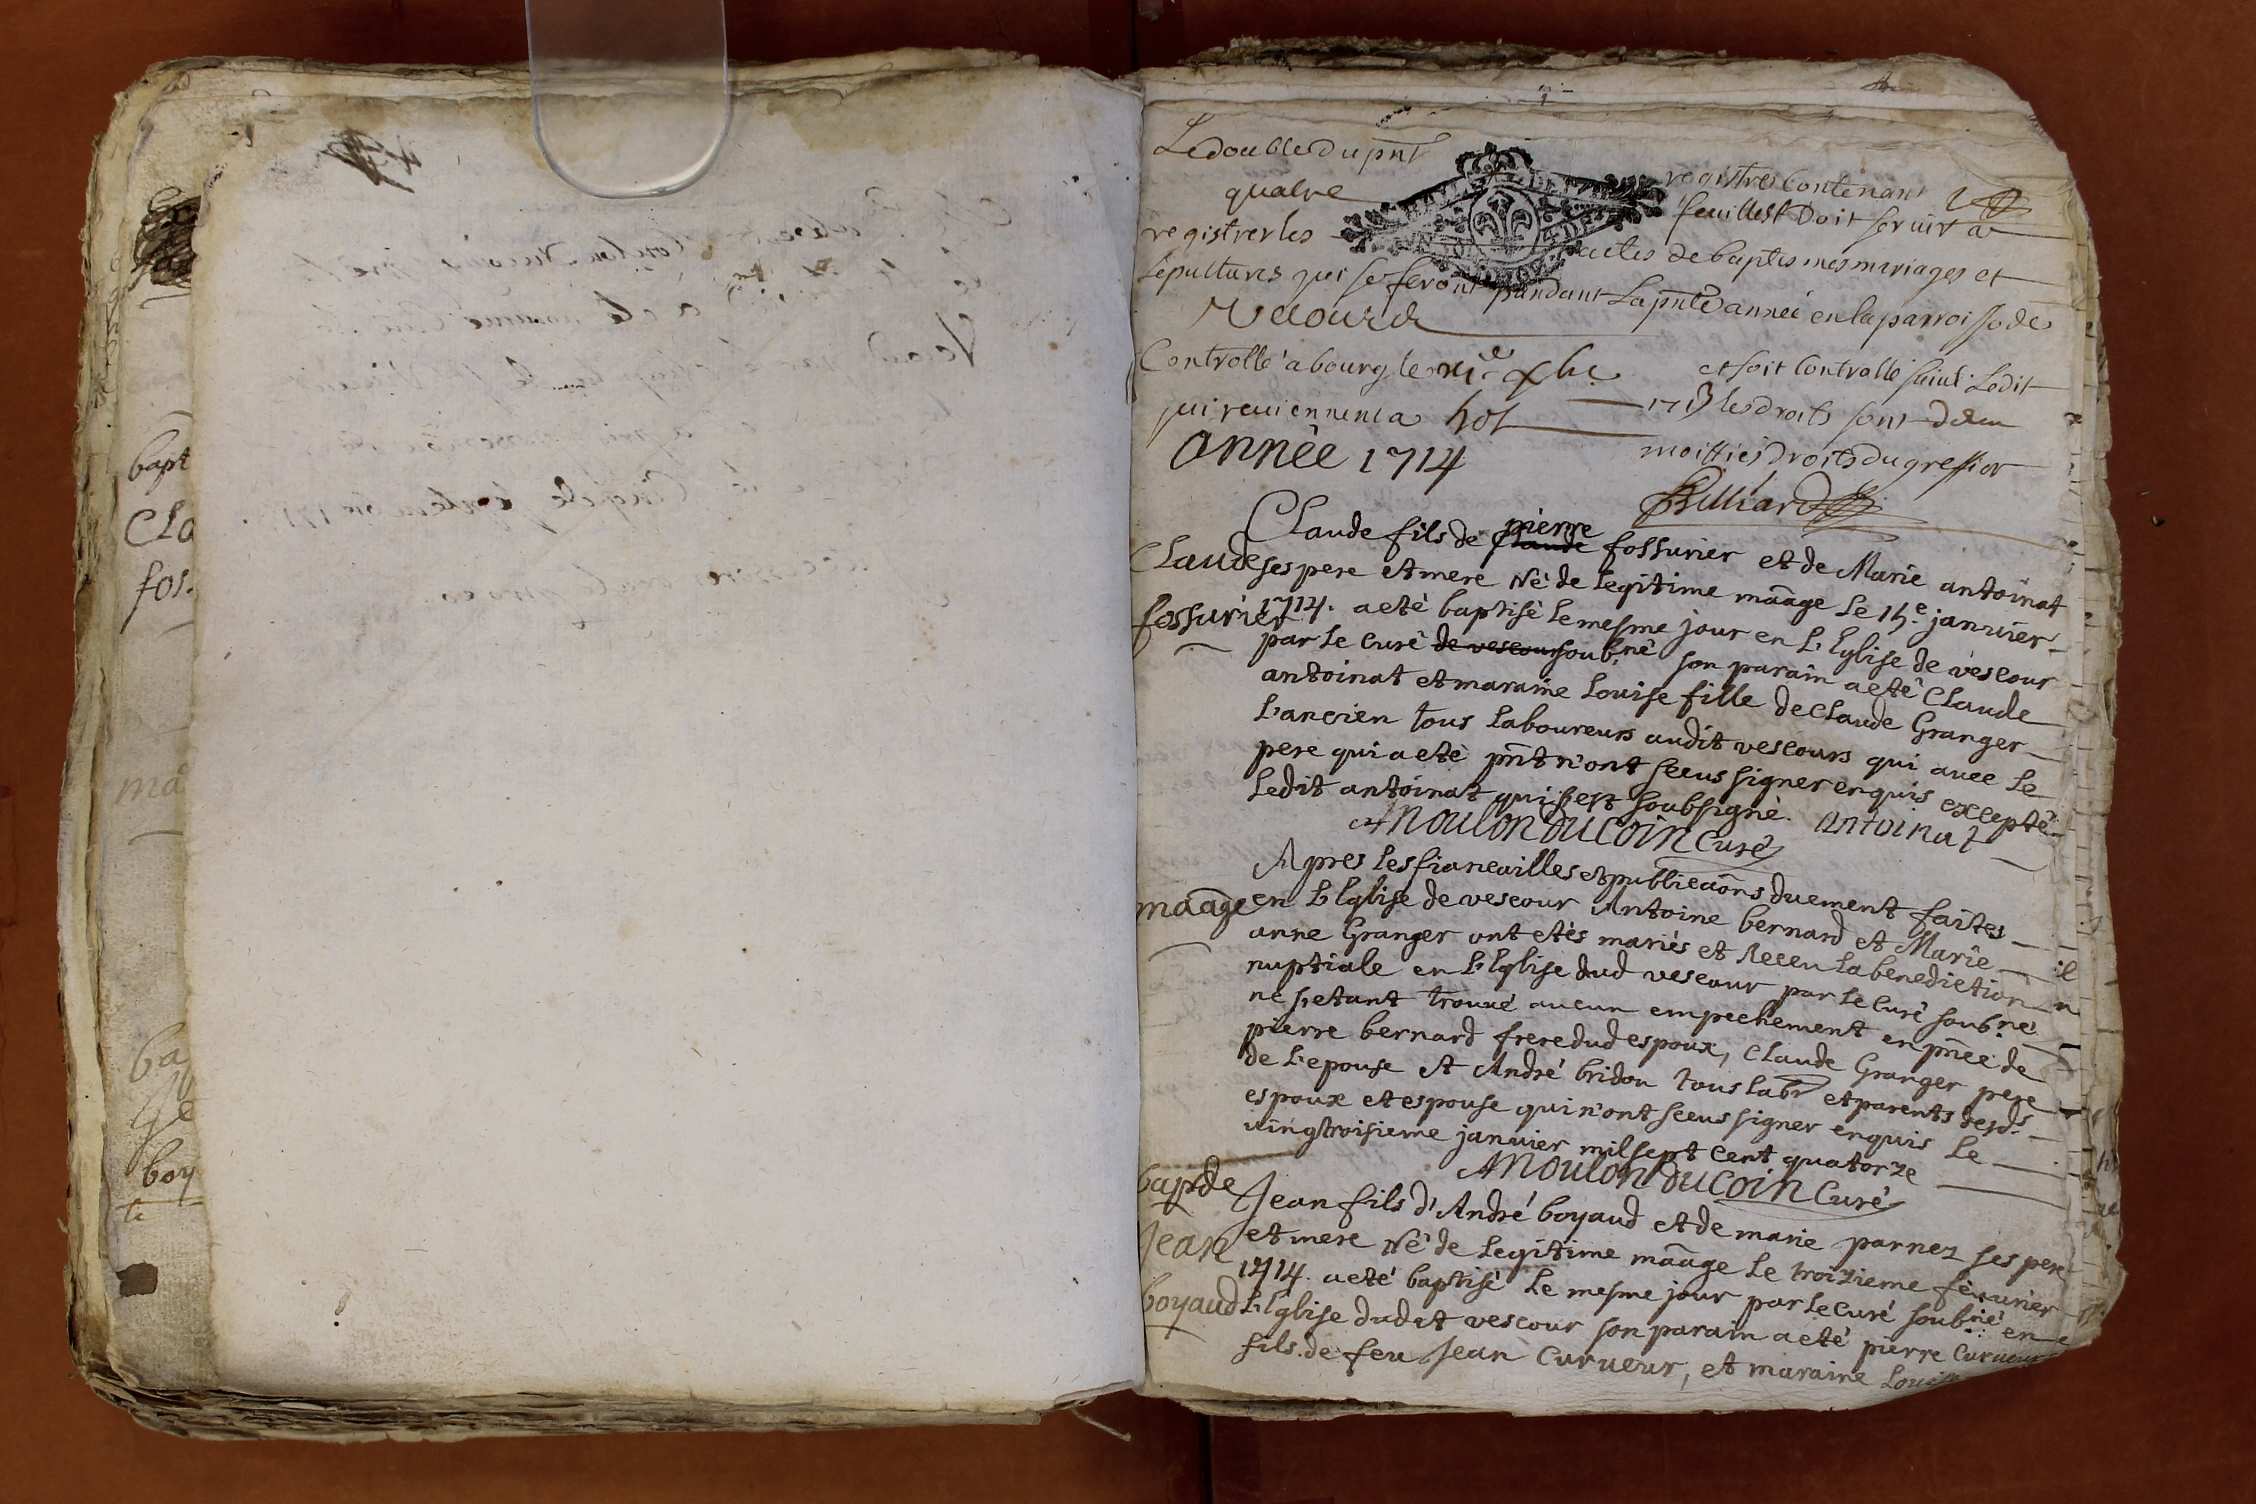 Le double du pnt registres contenant
quatre feuillest doit servir a
registrer les actes de baptesmes mariages et
sepultures qui se feront pandant la pnte année en la parroisse de
Vecourd
Controllé a bourg le et soit controllé suiut ledit
1713 les droits sont deau
qui reuiennent a moittié droits du greffier
Billiard
année 1714
Claude fils de claude pierre fossurier et de Marie antoinat
Claude
fossurier
ses pere et mere Né de legitime mãage le 15.e janvier
1714. a eté baptisé le mesme jour en L'Eglise de vescour
par le curé de vescour soub.né son parain a eté Claude
antoinat et maraine Louise fille de Claude Granger
L'ancien tous laboureurs audit vescours qui avec le
pere qui a eté pñt n'ont sceus signer enquis excepté
ledit antoinat qui s'est soubsigné. antoinat
A Moulon Ducoin Curé
Apres les fiancailles et publicaõns duement faites
mãage
en L'Eglise de vescour Antoine bernard et Marie
anne Granger ont etés mariés et Receu la benediction
nuptiale en L'Eglise dud vescour par le curé soub.né
ne s'etant trouvé aucun empechement en pñce de
pierre bernard frere dud espoux, Claude Granger pere
de L'epouse et André bridon tous labr et parents desd.s
espoux et espouse qui n'ont sceus signer enquis Le
vingtroisieme janvier mil sept cent quatorze
A Moulon Ducoin Curé
bap de
Jean
boyaud
Jean fils d'André boyaud et de marie parnez ses pere
et mere Né de legitime mãage le troizieme fevurier
1714. a eté baptisé le mesme jour par le curé soub.né en
L'Eglise dudit vescour son parain a eté pierre Curveur
fils de feu Jean Curveur, et maraine Louise
bapt
Cla
fos.
ma
ba
Je
boy